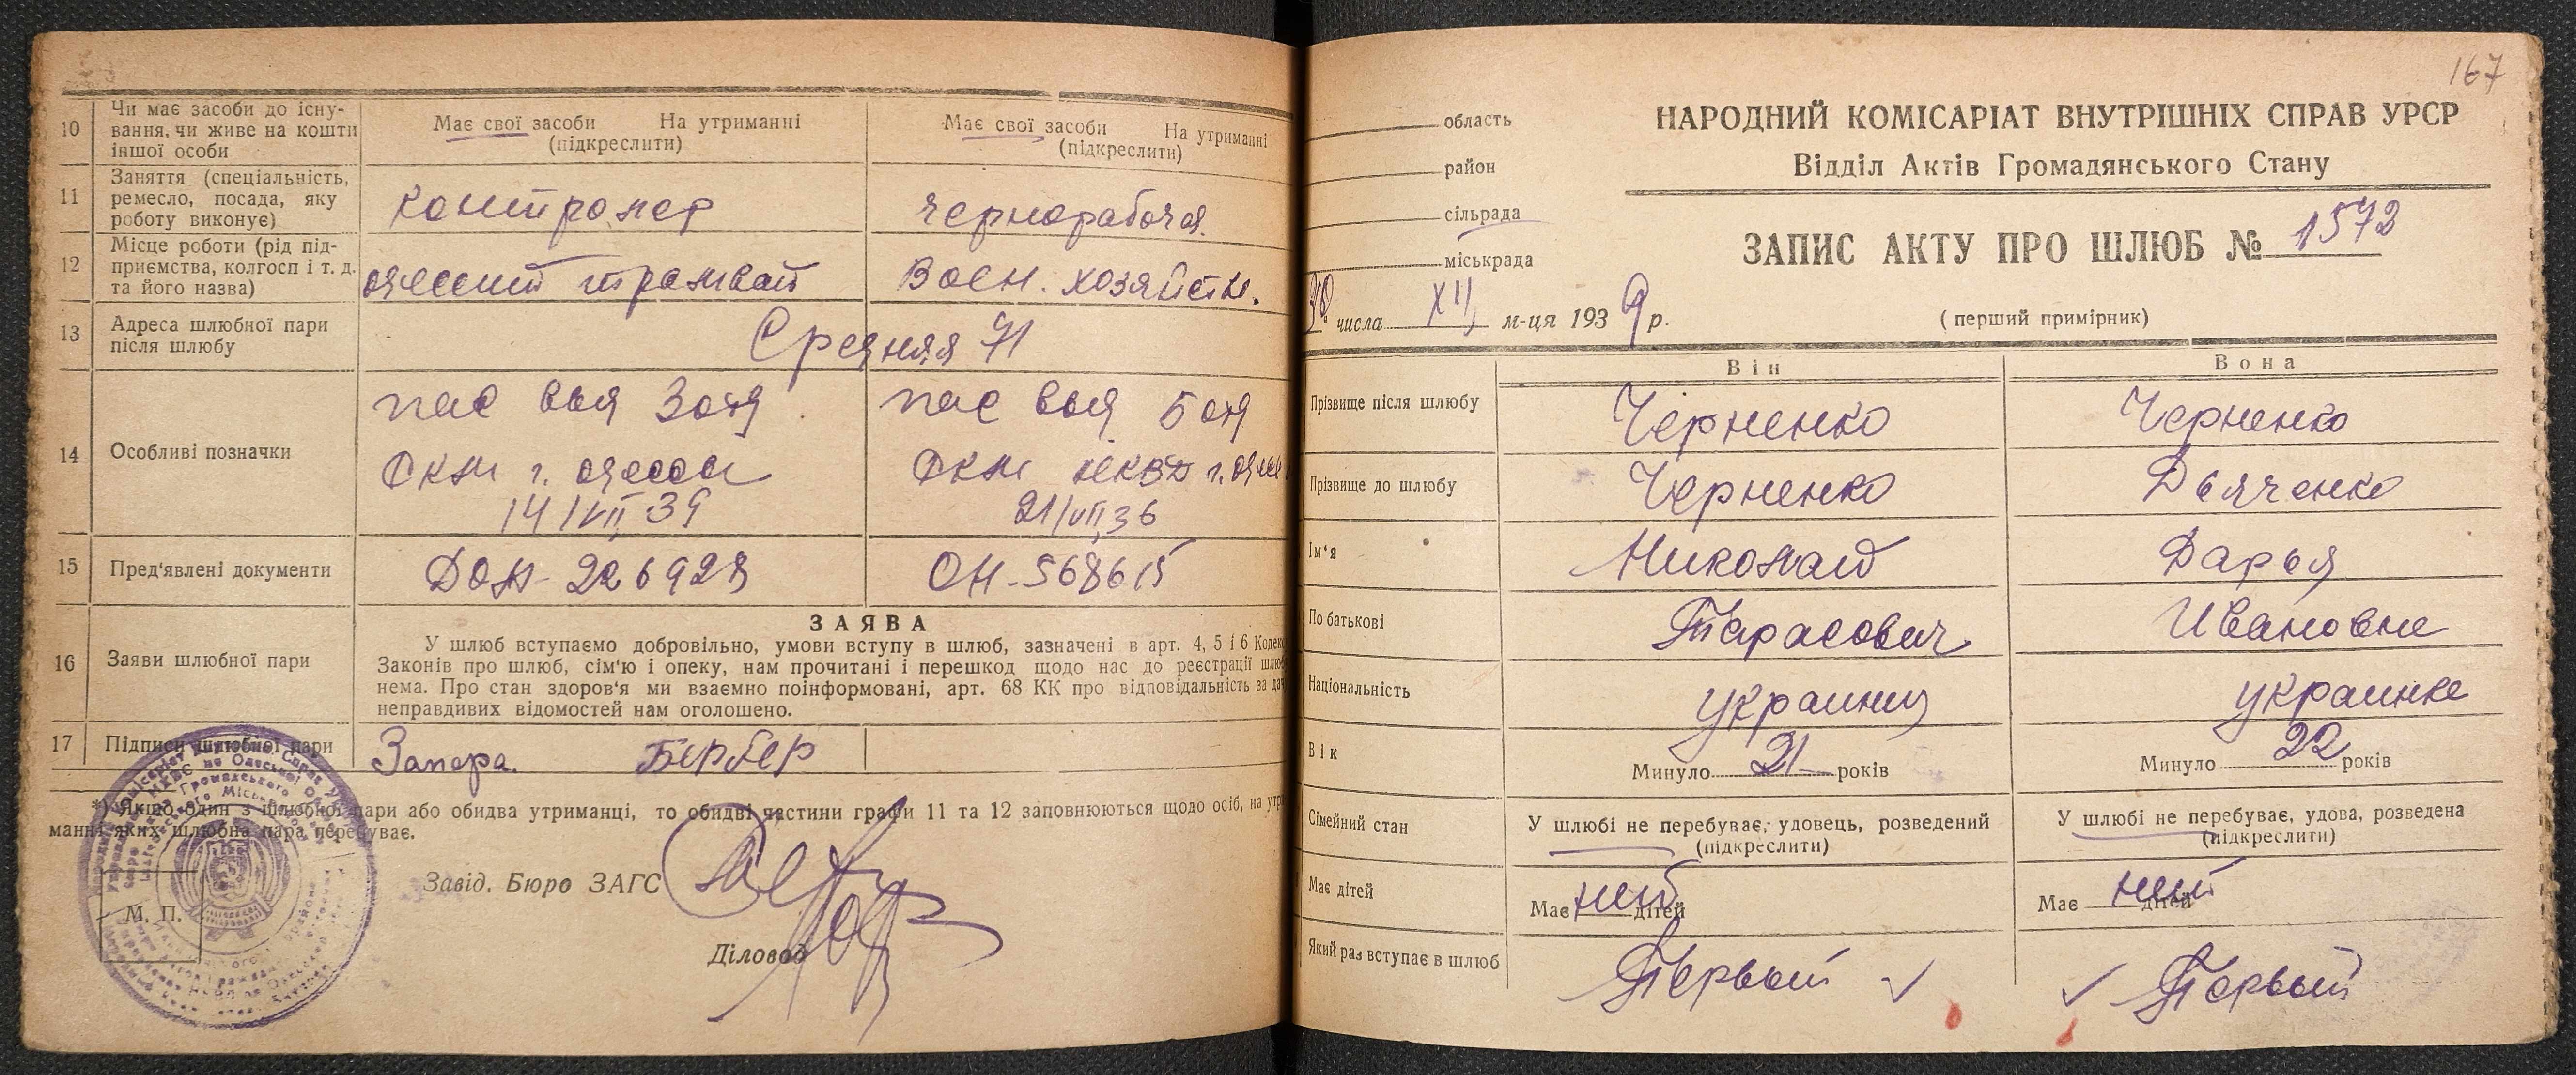 10
Чи має засоби до існу-
вання, чи живе на кошти
іншої особи
Має свої засоби На утриманні
(підкреслити)
Має свої засоби На утриманні
(підкреслити)
11
Заняття (спеціальність,
ремесло, посада, яку
роботу виконує)
контролер
чернорабочая
12
Місце роботи (рід під-
приємства, колгосп і т. д.
та його назва)
одесский трамвай
Воен. хозяйств.
13
Адреса шлюбної пари
після шлюбу
Средняя 71
14
Особливі позначки
пас выд 3 отд
ОКМ г. одессы
14/VII 39
пас выд 5 отд
ОКМ НКВД г.
21/VII 36
15
Пред'явлені документи
226923
ОН-568615
16
Заяви шлюбної пари
ЗАЯВА
У шлюб вступаємо добровільно, умови вступу в шлюб, зазначені в арт. 4, 5 і 6 Кодекс
Законів про шлюб, сім'ю і опеку, нам прочитані і перешкод щодо нас до реєстрації шлюб
нема. Про стан здоров'я ми взаємно поінформовані, арт. 68 КК про відповідальність за дач
неправдивих відомостей нам оголошено.
17
Підписи шлюбної пари
*) Якщо один з шлюбної пари або обидва утриманці, то обидві частини графи 11 та 12 заповнюються щодо осіб, на утри
манні яких шлюбна пара перебуває.
Завід. Бюро ЗАГС
М. П.
Діловод
167
область
район
сільрада
міськрада
НАРОДНИЙ КОМІСАРІАТ ВНУТРІШНІХ СПРАВ УРСР
Відділ Актів Громадянського Стану
ЗАПИС АКТУ ПРО ШЛЮБ № 1572
числа XII м-ця 1939 р.
(перший примірник)
Він
Вона
Прізвище після шлюбу
Черненко
Черненко
Прізвище до шлюбу
Черненко
Дьяченко
Ім'я
Николай
Дарья
По батькові
Тарасович
Ивановна
Національність
украинец
украинка
Вік
Минуло 21 років
Минуло 22 років
Сімейний стан
У шлюбі не перебуває, удовець, розведений
(підкреслити)
У шлюбі не перебуває, удова, розведена
(підкреслити)
Має дітей
Має нет дітей
Має нет дітей
Який раз вступає в шлюб
Первый
Первый